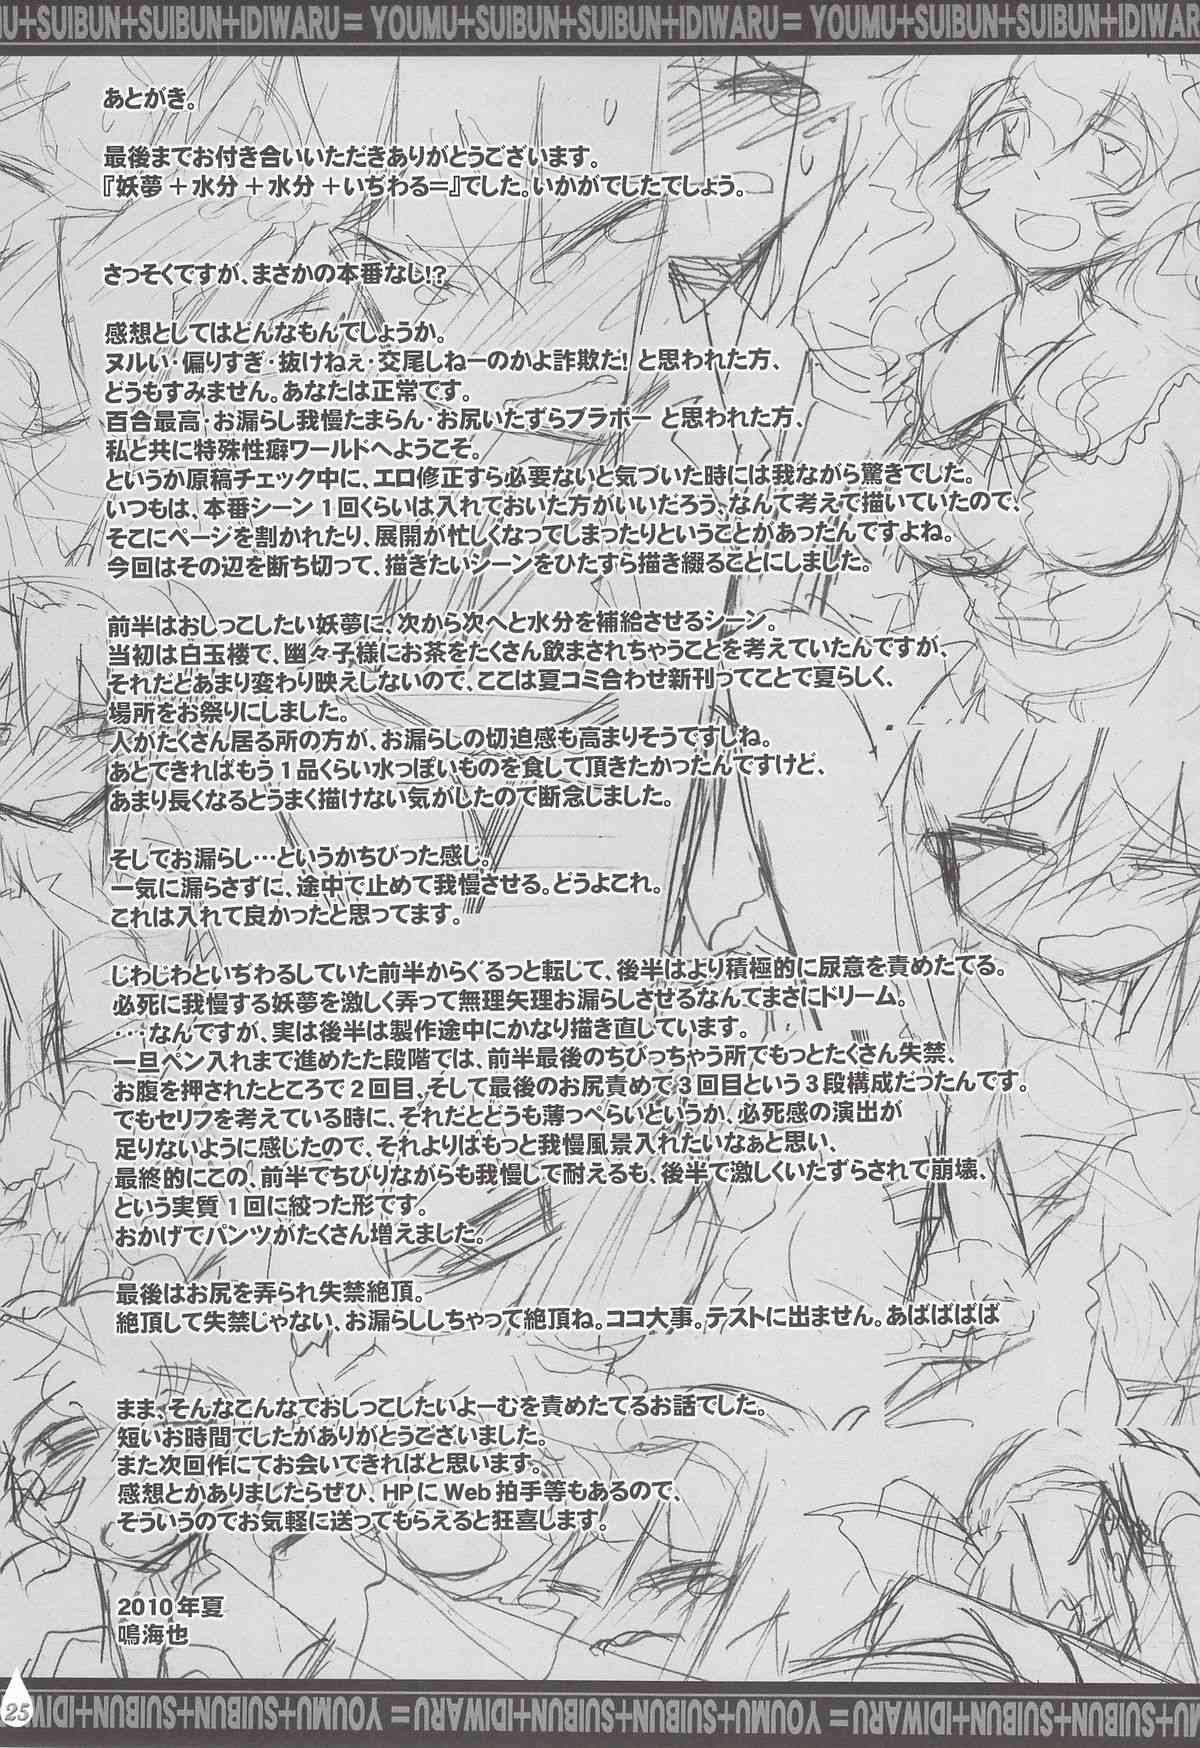 MU+SUIBUN+SUIBUN+IDIWARU= YOUMU+SUIBUN+SUIBUN+IDIWARU= YOUMU+SUIBUN+SUIBUN+IDIWARU
あとがき。
最後までお付き合いいただきありがとうございます。
『妖夢＋水分＋水分＋いぢわる＝』でした。いかがでしたでしょう。
さっそくですが、まさかの本番なし!?
感想としてはどんなもんでしょうか。
ヌルい・偏りすぎ・抜けねぇ・交尾しねーのかよ詐欺だ! と思われた方、
どうもすみません。あなたは正常です。
百合最高・お漏らし我慢たまらん・お尻いたずらブラボー と思われた方、
私と共に特殊性癖ワールドへようこそ。
というか原稿チェック中に、エロ修正すら必要ないと気づいた時には我ながら驚きでした。
いつもは、本番シーン1回くらいは入れておいた方がいいだろう、なんて考えで描いていたので、
そこにページを割かれたり、展開が忙しくなってしまったりということがあったんですよね。
今回はその辺を断ち切って、描きたいシーンをひたすら描き綴ることにしました。
前半はおしっこしたい妖夢に、次から次へと水分を補給させるシーン。
当初は白玉楼で、幽々子様にお茶をたくさん飲まされちゃうことを考えていたんですが、
それだとあまり変わり映えしないので、ここは夏コミ合わせ新刊ってことで夏らしく、
場所をお祭りにしました。
人がたくさん居る所の方が、お漏らしの切迫感も高まりそうですしね。
あとできればもう1品くらい水っぽいものを食して頂きたかったんですけど、
あまり長くなるとうまく描けない気がしたので断念しました。
そしてお漏らし…というかちびった感じ。
一気に漏らさずに、途中で止めて我慢させる。どうよこれ。
これは入れて良かったと思ってます。
じわじわといぢわるしていた前半からぐるっと転じて、後半はより積極的に尿意を責めたてる。
必死に我慢する妖夢を激しく弄って無理矢理お漏らしさせるなんてまさにドリーム。
・・・なんですが、実は後半は製作途中にかなり描き直しています。
一旦ペン入れまで進めたた段階では、前半最後のちびっちゃう所でもっとたくさん失禁、
お腹を押されたところで2回目、そして最後のお尻責めで3回目という3段構成だったんです。
でもセリフを考えている時に、それだとどうも薄っぺらいというか、必死感の演出が
足りないように感じたので、それよりはもっと我慢風景入れたいなぁと思い、
最終的にこの、前半でちびりながらも我慢して耐えるも、後半で激しくいたずらされて崩壊、
という実質1回に絞った形です。
おかげでパンツがたくさん増えました。
最後はお尻を弄られ失禁絶頂。
絶頂して失禁じゃない、お漏らししちゃって絶頂ね。ココ大事。テストに出ません。あばばばば
まま、そんなこんなでおしっこしたいよーむを責めたてるお話でした。
短いお時間でしたがありがとうございました。
また次回作にてお会いできればと思います。
感想とかありましたらぜひ、HPにWeb拍手等もあるので、
そういうのでお気軽に送ってもらえると狂喜します。
2010年夏
鳴海也
25
MU+SUIBUN+SUIBUN+IDIWARU= YOUMU+SUIBUN+SUIBUN+IDIWARU= YOUMU+SUIBUN+SUIBUN+IDIW